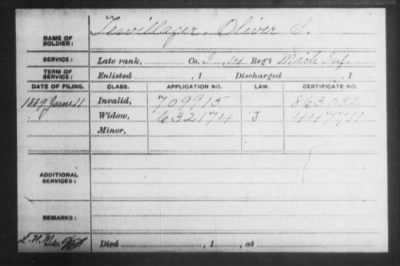 NAME OF SOLDIER: Tewillager, Oliver S.
SERVICE: Late rank, Co. I, 14 Reg't Mich Inf.
TERM OF SERVICE: Enlisted , 1 Discharged , 1
DATE OF FILING. CLASS. APPLICATION NO. LAW. CERTIFICATE NO.
1889 June 11 Invalid, 709915 863032
Widow, 632174 J 447711
Minor,
ADDITIONAL SERVICES:
REMARKS:
Died , 1 , at